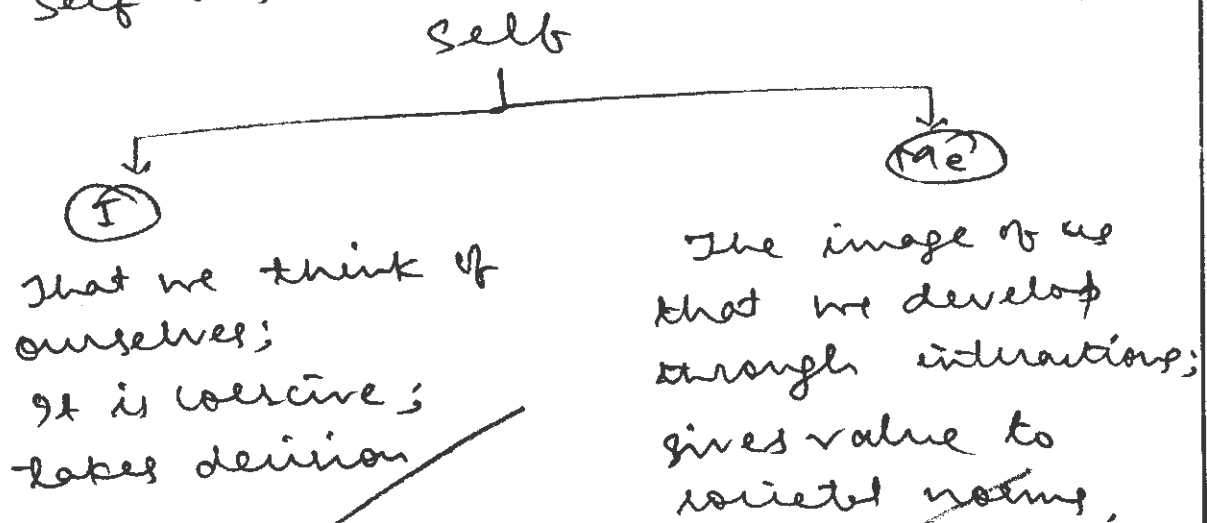 Self
Self
I
Me
That we think of
ourselves;
It is coerscive;
takes decision
The image of us
that we develop
through interactions;
gives value to
societal norms.